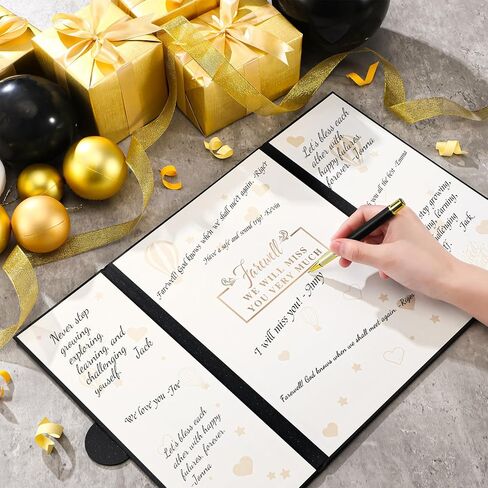 Never stop
growing,
exploring,
learning, and
challenging
youself. Jack
We love you -Joe
Let's bless each
other with happy
futures, forever.
-Jenna
Farewell God knows when we shall meet again. -Rigor
Have a safe and sound trip! -Kevin
Farewell
WE WILL MISS
YOU VERY MUCH
I will miss you! -Anny
Farewell God knows when we shall meet again. -Rigor
Let's bless each
other with
happy futures,
forever. -Jenna
you all the best -Emma
stop growing,
learning,
Jack